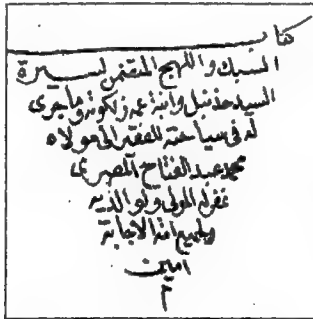 كتاب
السبك واللهج المقتض لسيرة
السيد حذنبل وابنة عمه زلكونه وماجرى
له فى سياحته للفقير الى مولاه
محمد عبد الفتاح المصرى
غفر له المولى ولوالديه
ولجميع امة الاجابة
امين
م